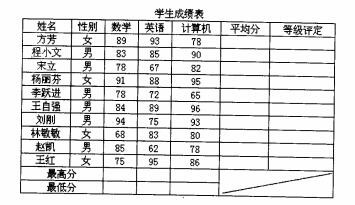 学生成绩表
姓名 性别 数学 英语 计算机 平均分 等级评定
方芳 女 89 93 78
程小文 男 83 85 90
宋立 男 78 67 82
杨丽芬 女 91 88 95
李跃进 男 78 72 65
王自强 男 84 89 96
刘刚 男 94 75 93
林敏敏 女 68 83 80
赵凯 男 85 62 78
王红 女 75 95 86
最高分
最低分